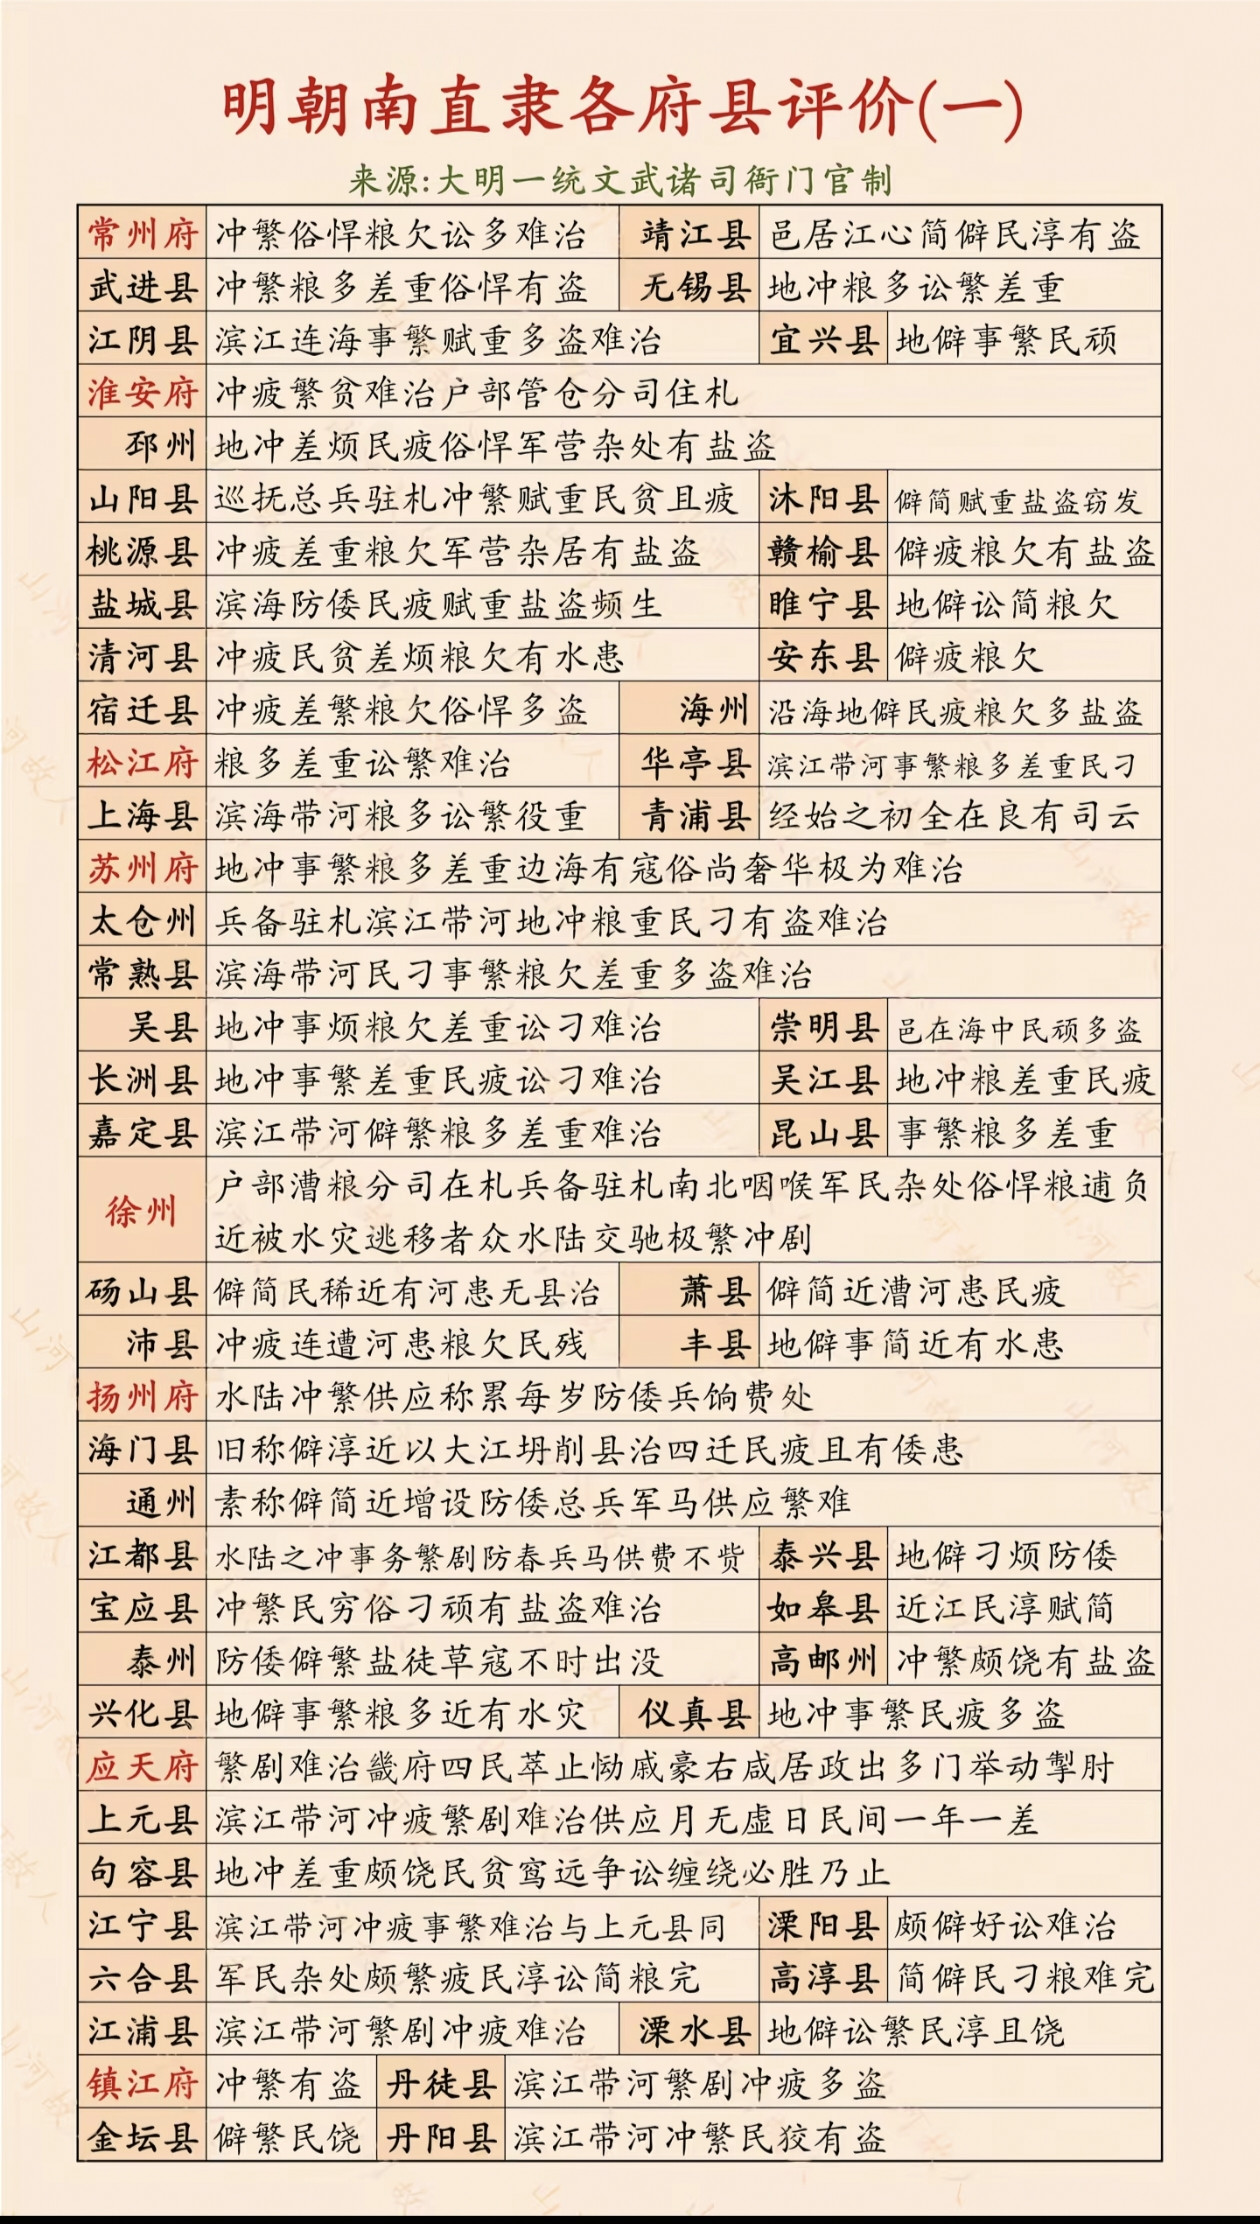 明朝南直隶各府县评价(一)
来源:大明一统文武诸司衙门官制
常州府 冲繁俗悍粮欠讼多难治 靖江县 邑居江心简僻民淳有盗
武进县 冲繁粮多差重俗悍有盗 无锡县 地冲粮多讼繁差重
江阴县 滨江连海事繁赋重多盗难治 宜兴县 地僻事繁民顽
淮安府 冲疲繁贫难治户部管仓分司住札
邳州 地冲差烦民疲俗悍军营杂处有盐盗
山阳县 巡抚总兵驻札冲繁赋重民贫且疲 沐阳县 僻简赋重盐盗窃发
桃源县 冲疲差重粮欠军营杂居有盐盗 赣榆县 僻疲粮欠有盐盗
盐城县 滨海防倭民疲赋重盐盗频生 睢宁县 地僻讼简粮欠
清河县 冲疲民贫差烦粮欠有水患 安东县 僻疲粮欠
宿迁县 冲疲差繁粮欠俗悍多盗 海州 沿海地僻民疲粮欠多盐盗
松江府 粮多差重讼繁难治 华亭县 滨江带河事繁粮多差重民刁
上海县 滨海带河粮多讼繁役重 青浦县 经始之初全在良有司云
苏州府 地冲事繁粮多差重边海有寇俗尚奢华极为难治
太仓州 兵备驻札滨江带河地冲粮重民刁有盗难治
常熟县 滨海带河民刁事繁粮欠差重多盗难治
吴县 地冲事烦粮欠差重讼刁难治 崇明县 邑在海中民顽多盗
长洲县 地冲事繁差重民疲讼刁难治 吴江县 地冲粮差重民疲
嘉定县 滨江带河僻繁粮多差重难治 昆山县 事繁粮多差重
徐州 户部漕粮分司在札兵备驻札南北咽喉军民杂处俗悍粮逋负
近被水灾逃移者众水陆交驰极繁冲剧
砀山县 僻简民稀近有河患无县治 萧县 僻简近漕河患民疲
沛县 冲疲连遭河患粮欠民残 丰县 地僻事简近有水患
扬州府 水陆冲繁供应称累每岁防倭兵饷费处
海门县 旧称僻淳近以大江坍削县治四迁民疲且有倭患
通州 素称僻简近增设防倭总兵军马供应繁难
江都县 水陆之冲事务繁剧防春兵马供费不赀 泰兴县 地僻刁烦防倭
宝应县 冲繁民穷俗刁顽有盐盗难治 如皋县 近江民淳赋简
泰州 防倭僻繁盐徒草寇不时出没 高邮州 冲繁颇饶有盐盗
兴化县 地僻事繁粮多近有水灾 仪真县 地冲事繁民疲多盗
应天府 繁剧难治畿府四民萃止勋戚豪右咸居政出多门举动掣肘
上元县 滨江带河冲疲繁剧难治供应月无虚日民间一年一差
句容县 地冲差重颇饶民贫鸾远争讼缠绕必胜乃止
江宁县 滨江带河冲疲事繁难治与上元县同 溧阳县 颇僻好讼难治
六合县 军民杂处颇繁疲民淳讼简粮完 高淳县 简僻民刁粮难完
江浦县 滨江带河繁剧冲疲难治 溧水县 地僻讼繁民淳且饶
镇江府 冲繁有盗 丹徒县 滨江带河繁剧冲疲多盗
金坛县 僻繁民饶 丹阳县 滨江带河冲繁民狡有盗